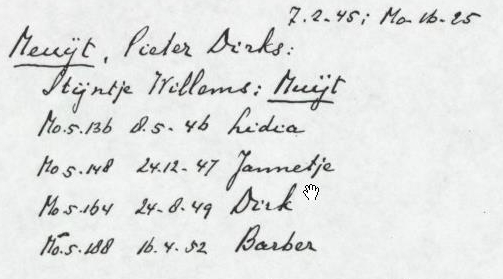 7.2-45; Mo-16-25
Meuÿt, Pieter Dirks:
Stÿntje Willems: Muÿt
Mo.5.136 8.5-46 Lidia
Mo5.148 24.12-47 Jannetje
Mo5.164 24-8.49 Dirk
Mo.5.188 16.4.52 Barber